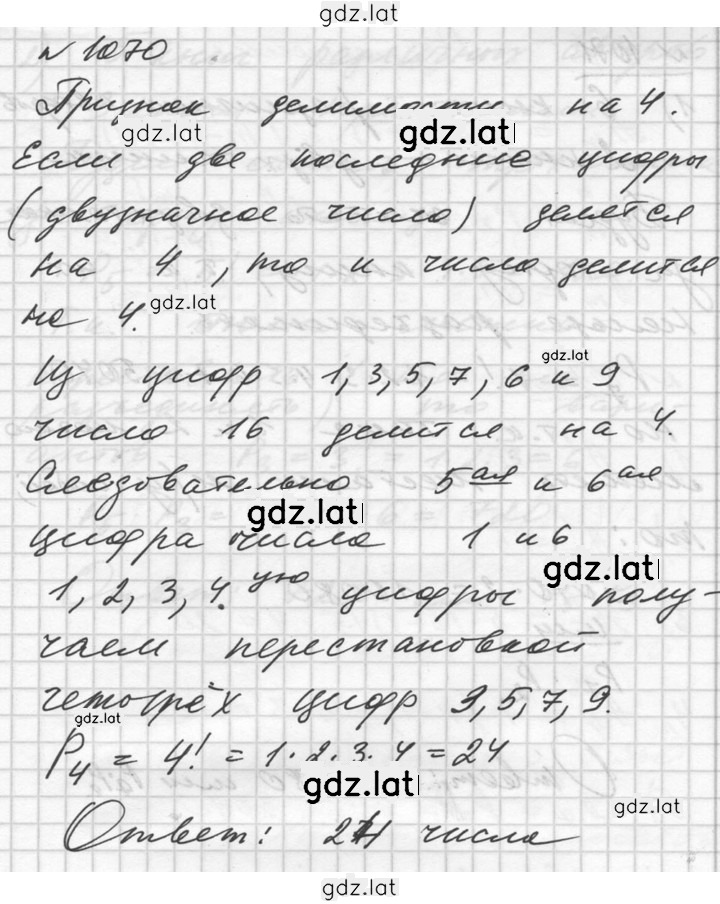 gdz.lat
№ 1070
Признак делимости на 4.
gdz.lat gdz.lat
Если две последние цифры
(двузначное число) делятся
на 4, то и число делится
на 4. gdz.lat
gdz.lat
Из цифр 1, 3, 5, 7, 6 и 9
число 16 делится на 4.
Следовательно 5ая и 6ая
gdz.lat
цифра числа 1 и 6
gdz.lat
1, 2, 3, 4.ую цифры полу-
чаем перестановкой
четырёх цифр 3, 5, 7, 9.
gdz.lat
P4 = 4! = 1·2·3·4 = 24
gdz.lat
gdz.lat
Ответ: 24 числа
gdz.lat